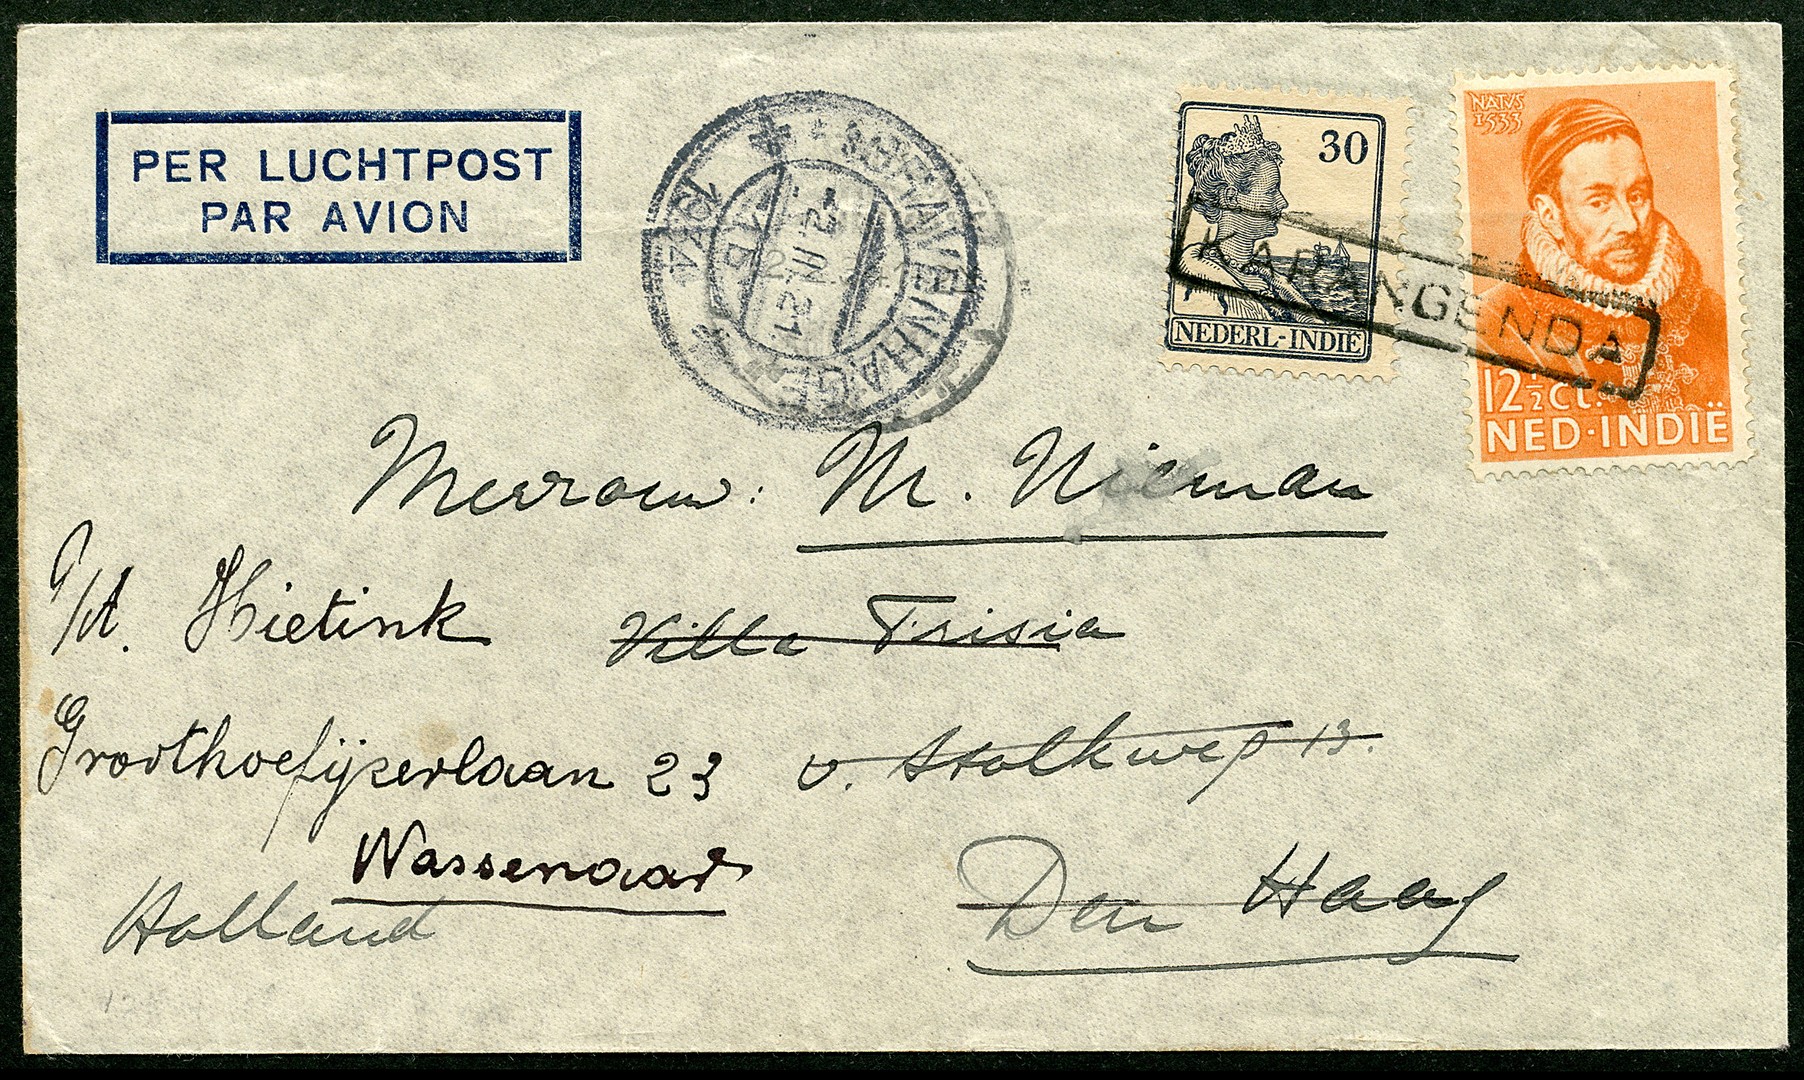 PER LUCHTPOST
PAR AVION
'S-GRAVENHAGE
30
NEDERL-INDIË
NATVS
1533
12½ ct.
NED·INDIË
KARANGENDA
Mevrouw: M. Nieman
p/A. Hietink
Villa Frisia
Groothoefijzerlaan 23
v. Stolkweg 13.
Wassenaar
Holland
Den Haag